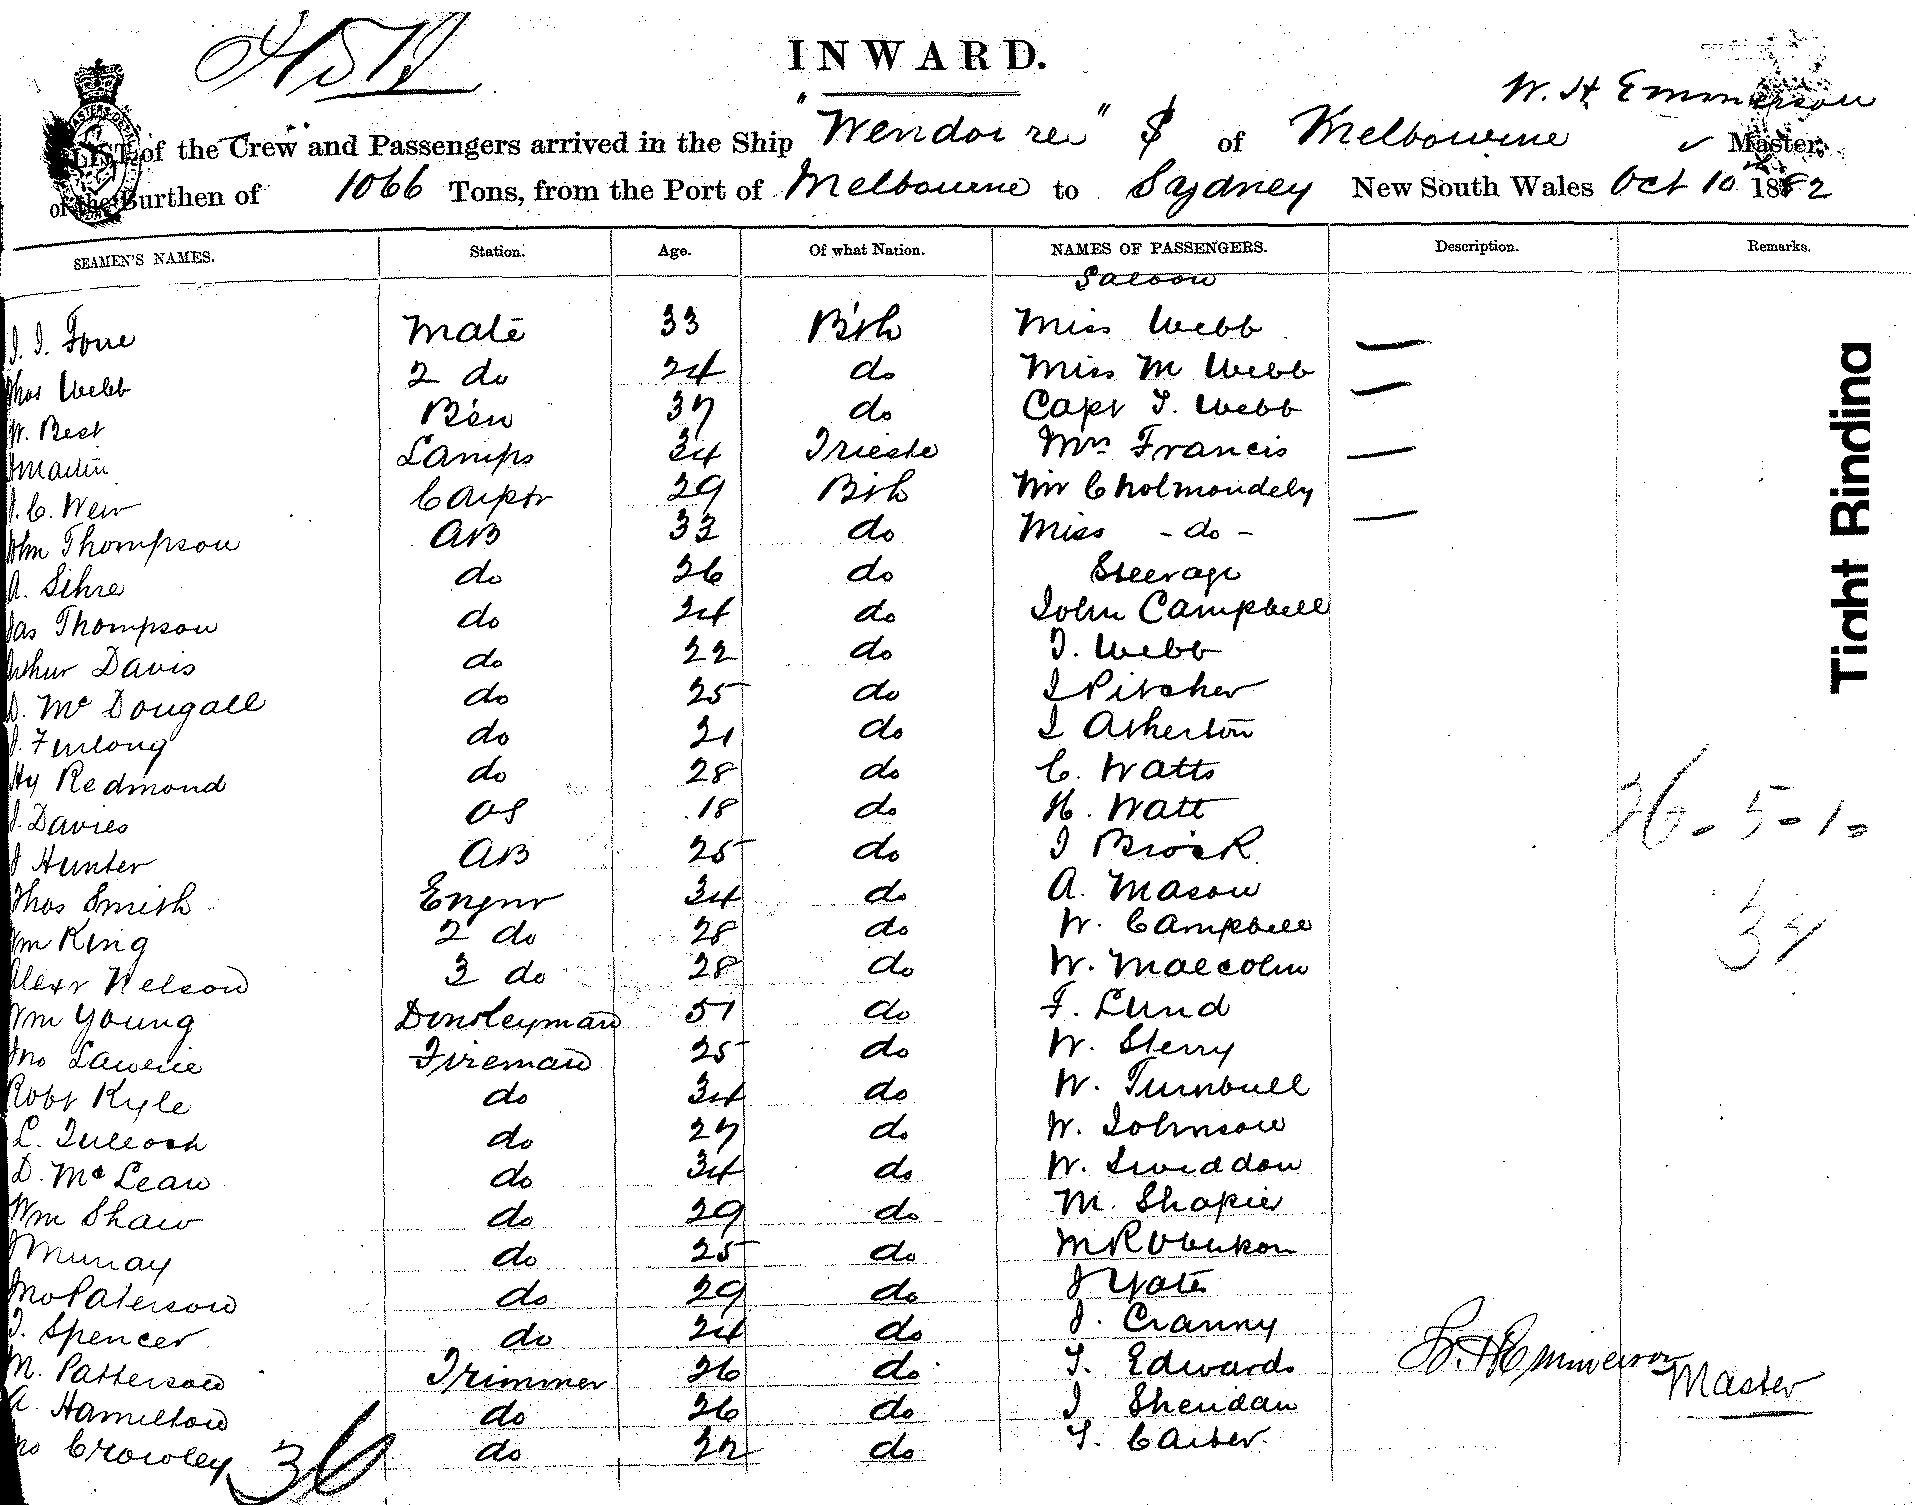 INWARD.
W. H Emmerson
LIST of the Crew and Passengers arrived in the Ship "Wendouree" S of Melbourne Master,
of the Burthen of 1066 Tons, from the Port of Melbourne to Sydney New South Wales Oct 10 1882
SEAMEN'S NAMES. Station. Age. Of what Nation. NAMES OF PASSENGERS. Description. Remarks.
Saloon
Mate 33 B'sh Miss Webb
Thos Webb 2 do 24 do Miss M Webb
W. Best B'sn 37 do Capt T. Webb
Martin Lamps 34 Trieste Mrs Francis
J. C. Weir Carptr 29 B'sh Mr Cholmondely
John Thompson AB 33 do Miss - do -
A. do 26 do Steerage
Jas Thompson do 24 do John Campbell
Arthur Davis do 22 do T. Webb
D. Mc Dougall do 25 do J Pitcher
J. Furlong do 21 do J Atherton
Hy Redmond do 28 do C. Watts
J. Davies OS 18 do H. Watt
J Hunter AB 25 do J Brock
Thos Smith Engnr 34 do A. Mason
Wm King 2 do 28 do W. Campbell
Alexr Nelson 3 do 28 do W. Malcolm
Wm Young Donkeyman 51 do F. Lund
Jno Lawrie Fireman 25 do W. Sterry
Robt Kyle do 34 do W. Turnbull
L. Tulloch do 27 do W. Johnson
D. Mc Lean do 34 do W. Sweddon
Wm Shaw do 29 do M. Shapier
J Murray do 25 do M Robertson
Jno Paterson do 29 do J Yates
J. Spencer do 24 do J. Cranny
M. Patterson Trimmer 26 do T. Edwards
A. Hamilton do 26 do J Sheridan
Jno Crowley do 22 do T. Carter.
36
26 - 5 - 1 -
W. H Emmerson
Master
Tight Binding